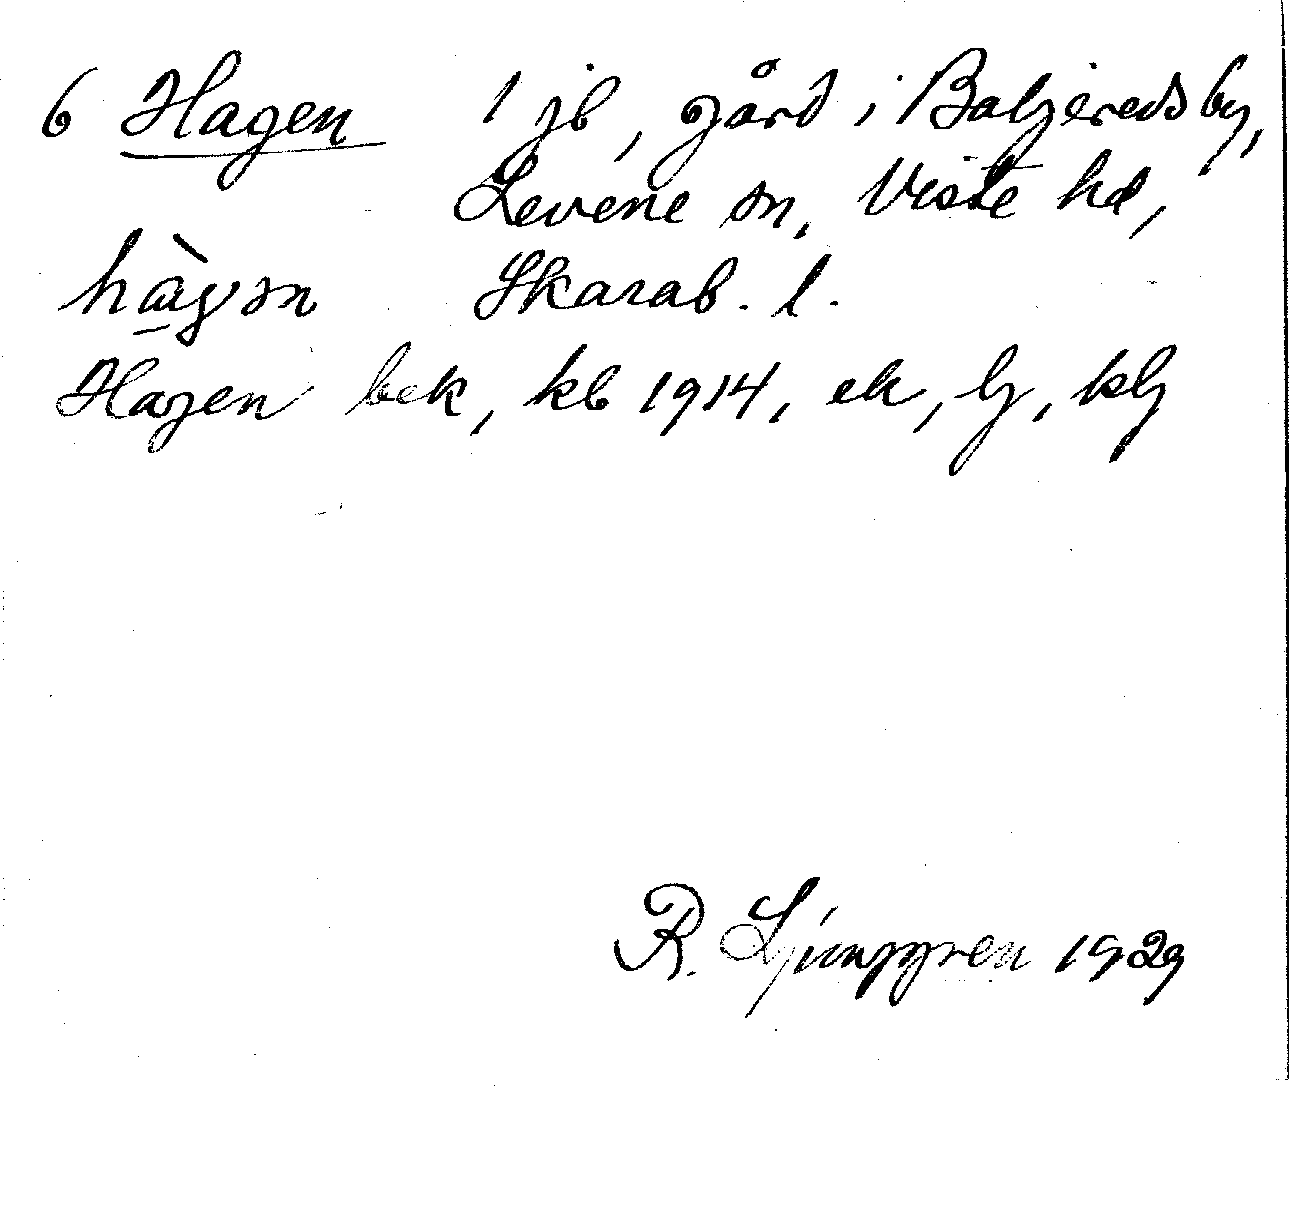 6 Hagen 1 jb, gård i Baljereds by,
Levene sn, Viste hd,
hàgən Skarab. l.
Hagen bek, kb 1914, ek, lj, klj
R. Ljunggren 1929